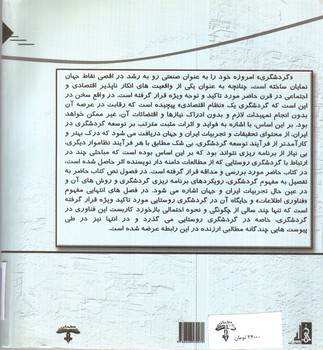 «گردشگری» امروزه خود را به عنوان صنعتی رو به رشد در اقصی نقاط جهان
نمایان ساخته است، چنانچه به عنوان یکی از واقعیت های انکار ناپذیر اقتصادی و
اجتماعی در قرن حاضر مورد تاکید و توجه ویژه قرار گرفته است. در واقع سخن در
این است که گردشگری یک «نظام اقتصادی» پیچیده است که رقابت در عرصه آن
بدون انجام تمهیدات لازم و بدون ادراک نیازها و اقتضائات آن، غیر ممکن خواهد
بود. بر این اساس، با اشاره به فواید و اثرات مثبت مترتب بر توسعه گردشگری در
ایران، از محتوای تحقیقات و تجربیات ایران و جهان دریافت می شود که درک بهتر و
کارآمدتر از فرآیند توسعه گردشگری، بی شک مطابق با هر فرآیند نظاموار دیگری،
بی نیاز از برنامه ریزی نتواند بود که بر این اساس بوده است که مباحثی چند در
ارتباط با گردشگری روستایی که از مطالعات دامنه دار نویسنده اثر حاصل شده است،
در کتاب حاضر مورد بررسی و مداقه قرار گرفته است. در فصول نص کتاب حاضر به
تفصیل به مفهوم گردشگری، رویکردهای برنامه ریزی گردشگری و روش های آن و
در عین حال تجربیات ایران و جهان اشاره می شود. در فصل های انتهایی مفهوم
«فناوری اطلاعات» و جایگاه آن در گردشگری روستایی مورد تاکید ویژه قرار گرفته
است که تنها چند سالی از چگونگی و نحوه احتمالی بازخورد کاربست این فناوری در
گردشگری، خاصه در گردشگری روستایی می گذرد و در انتها نیز در طی
پیوست هایی چندگانه مطالبی ارزنده در این رابطه عرضه شده است.
۲۴۰۰۰ تومان